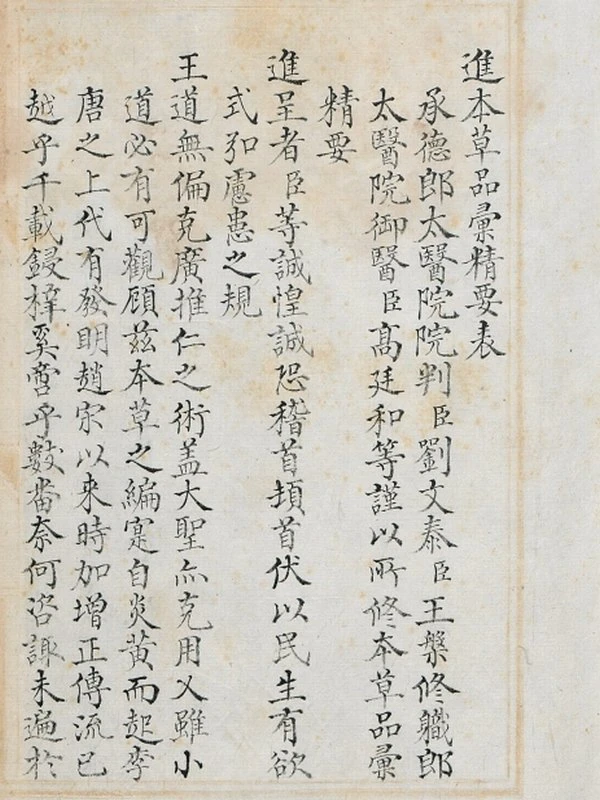 進本草品彙精要表
承德郎太醫院院判臣劉文泰臣王槃修職郎
太醫院御醫臣高廷和等謹以所修本草品彙
精要
進呈者臣等誠惶誠恐稽首頓首伏以民生有欲
式弘慮患之規
王道無偏克廣推仁之術蓋大聖亦克用乂雖小
道必有可觀顧茲本草之編寔自炎黃而起李
唐之上代有發明趙宋以来時加增正傳流已
越乎千載鋟梓奚啻乎數番奈何咨諏未遍於